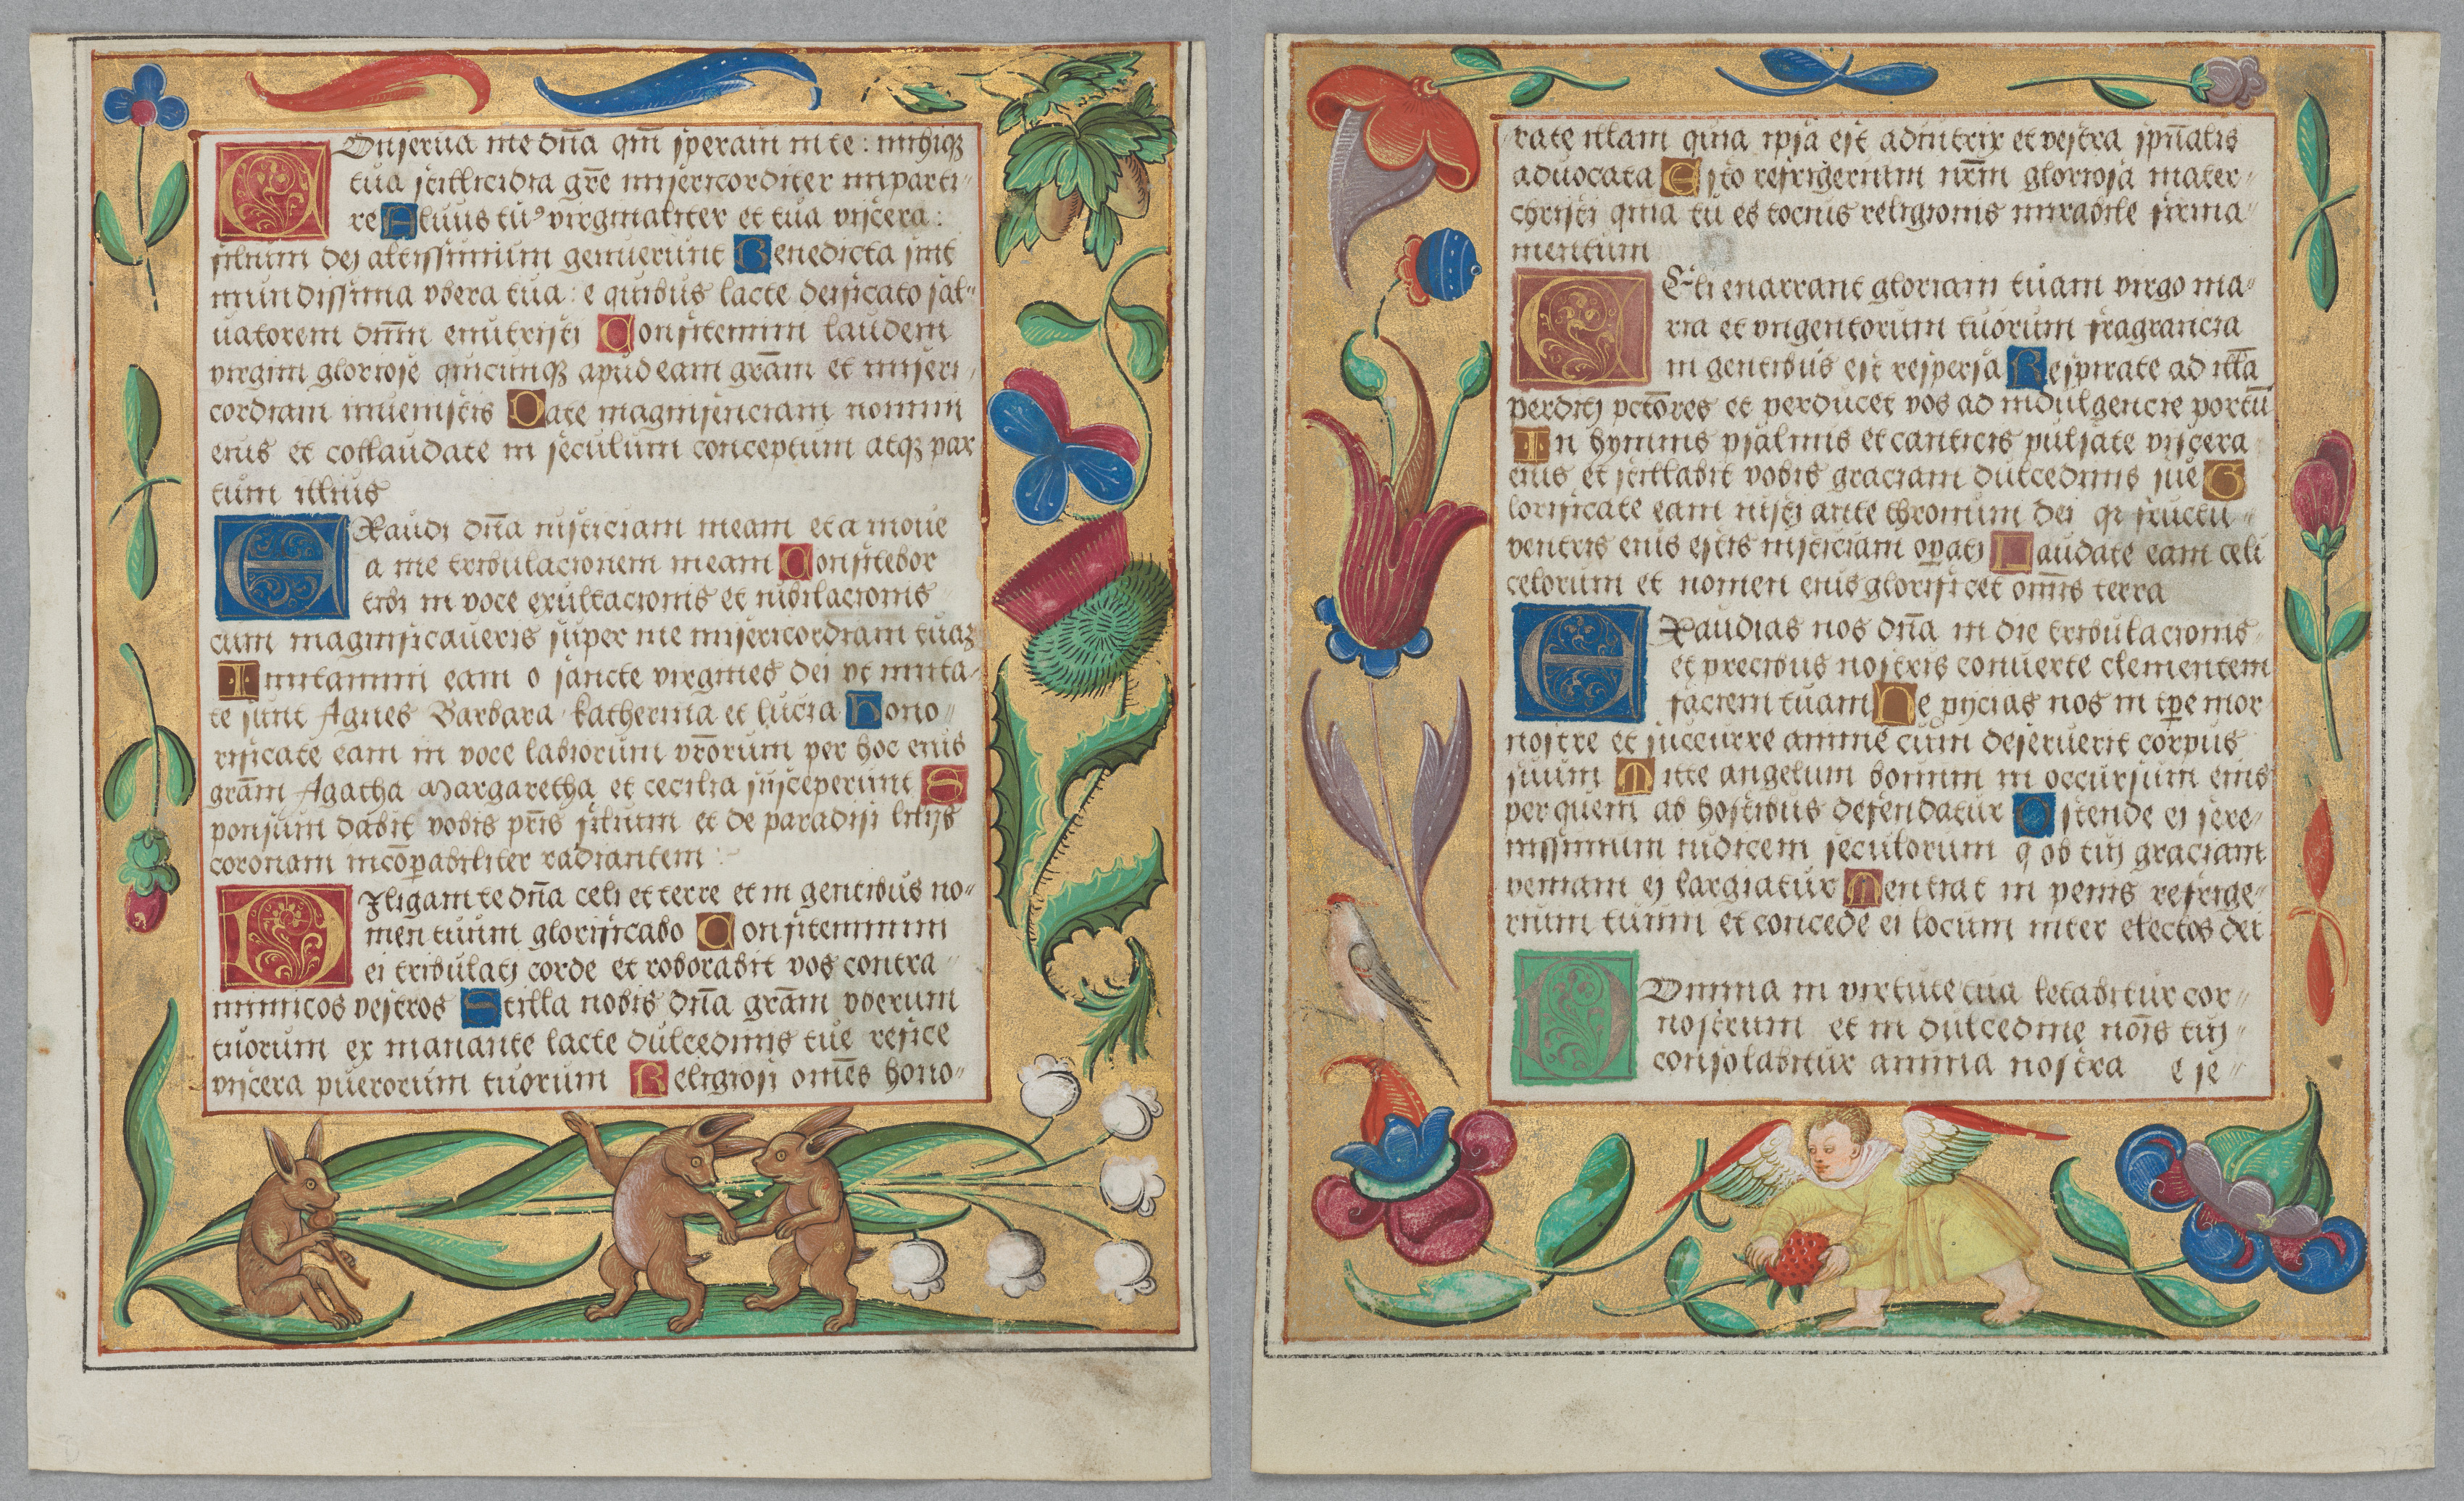 Conserua me dña qm̄ speraui in te : mihiqꝫ
tua stillicidia grē misericorditer imparti-
re Aluus tuꝰ virginaliter et tua viscera :
filium dei altissimium genuerunt Benedicta sint
mundissima vbera tua : e quibus lacte deificato sal-
uatorem dn̄m enutristi Confitemini laudem
virgini gloriose quicunqꝫ apud eam grām et miseri-
cordiam inuenistis Date magnificenciam nomini
eius et collaudate in seculum conceptum atqꝫ par
tum illius
EXaudi dña iusticiam meam et a moue
a me tribulacionem meam Confitebor
tibi in voce exultacionis et iubilacionis
cum magnificaueris super me misericordiam tuaꝫ
Imitamini eam o sancte virgines dei vt imita-
te sunt Agnes Barbara katherina et lucia Hono-
rificate eam in voce labiorum vr̄orum per hoc enis
grām Agatha Margaretha et cecilia susceperunt S
ponsum dabit vobis pr̄is filium et de paradisi lilijs
coronam incōparabiliter radiantem
DIligam te dña celi et terre et in gentibus no-
men tuum glorificabo Confitemimi
ei tribulati corde et roborabit vos contra
inimicos vestros Stilla nobis dña grām vberum
tuorum ex manante lacte dulcedinis tue refice
viscera puerorum tuorum Religiosi om̄es hono-
rate illam quia ipsa est adiutrix et vestra sp̄nalis
aduocata Esto refrigerium nr̄m gloriosa mater
christi quia tu es tocius religionis mirabile firma-
mentum
CEli enarrant gloriam tuam virgo ma-
ria et vngentorum tuorum fragrancia
in gentibus est respersa Respirate ad illā
perditi pctōres et perducet vos ad indulgencie portū
In hymnis psalmis et canticis pulsate viscera
eius et stillabit vobis graciam dulcedinis sue G
lorificate eam iusti ante thronum dei qr fructu
ventris eius estis iusticiam opati Laudate eam celi
celorum et nomen eius glorificet om̄is terra
EXaudias nos dña in die tribulacionis
et precibus nostris conuerte clementem
faciem tuam Ne picias nos in tpe mor
nostre et succurre anime cum deseruerit corpus
suum Mitte angelum bonum in occursum eius
per quem ab hostibus defendatur Ostende ei sere-
nissimum iudicem seculorum q ob tui graciam
veniam ei largiatur Sentiat in penis refrige-
rium tuum et concede ei locum inter electos dei
DOmina in virtute tua letabitur cor-
nostrum et in dulcedine nōis tui
consolabitur anima nostra e se